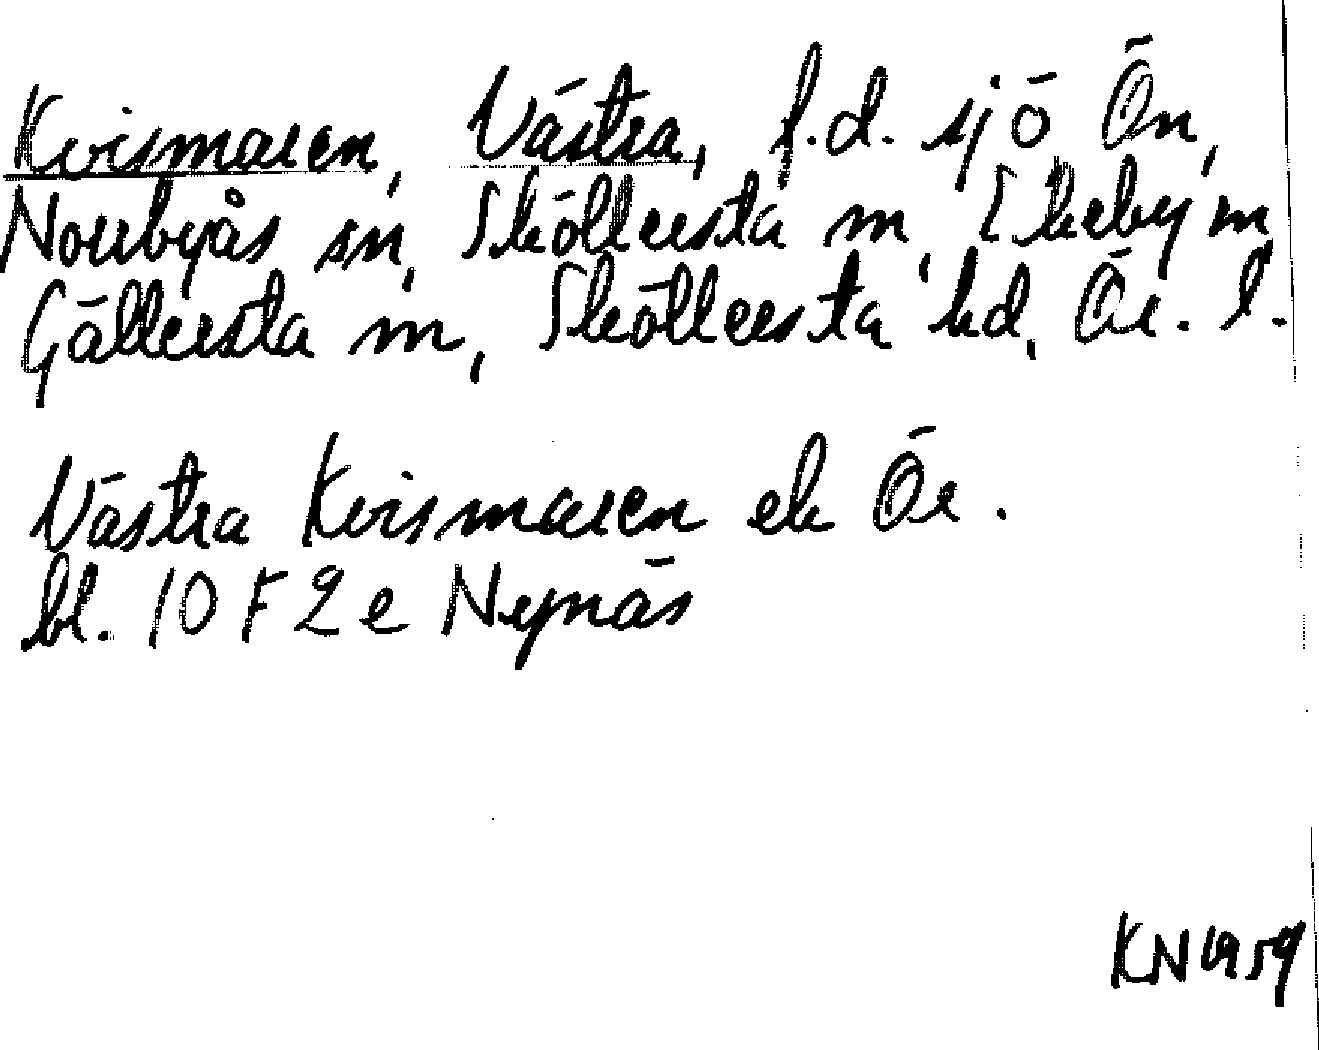 Kvismaren, Västra, f.d. sjö Ön,
Norrbyås sn, Sköllersta sn, Ekeby sn,
Gällersta sn, Sköllersta hd, Ör. l.
Västra Kvismaren ek Ör.
bl. 10 F 2 e Nynäs
KN 1959